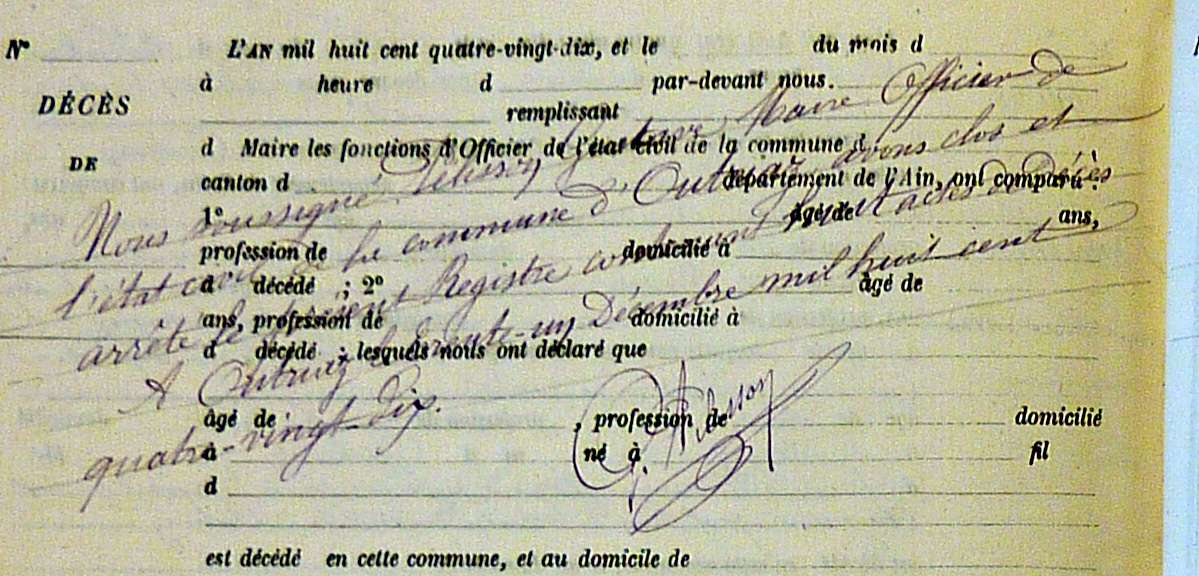 N° L'AN mil huit cent quatre-vingt-dix, et le du mois d
à heure d par-devant nous.
DÉCÈS remplissant
DE d Maire les fonctions d'Officier de l'état civil de la commune d
canton d département de l'Ain, ont comparu :
1° âgé de ans,
profession de domicilié à
d décédé ; 2° âgé de
ans, profession de domicilié à
d décédé ; lesquels nous ont déclaré que
âgé de , profession de domicilié
à né à fil
d
est décédé en cette commune, et au domicile de
Nous soussigné Pélisson Gustave, Maire Officier de
l'état civil de la commune d'Outriaz avons clos et
arrêté le présent Registre contenant actes de décès
A Outriaz le trente-un Décembre mil huit cent
quatre-vingt dix.
Pélisson